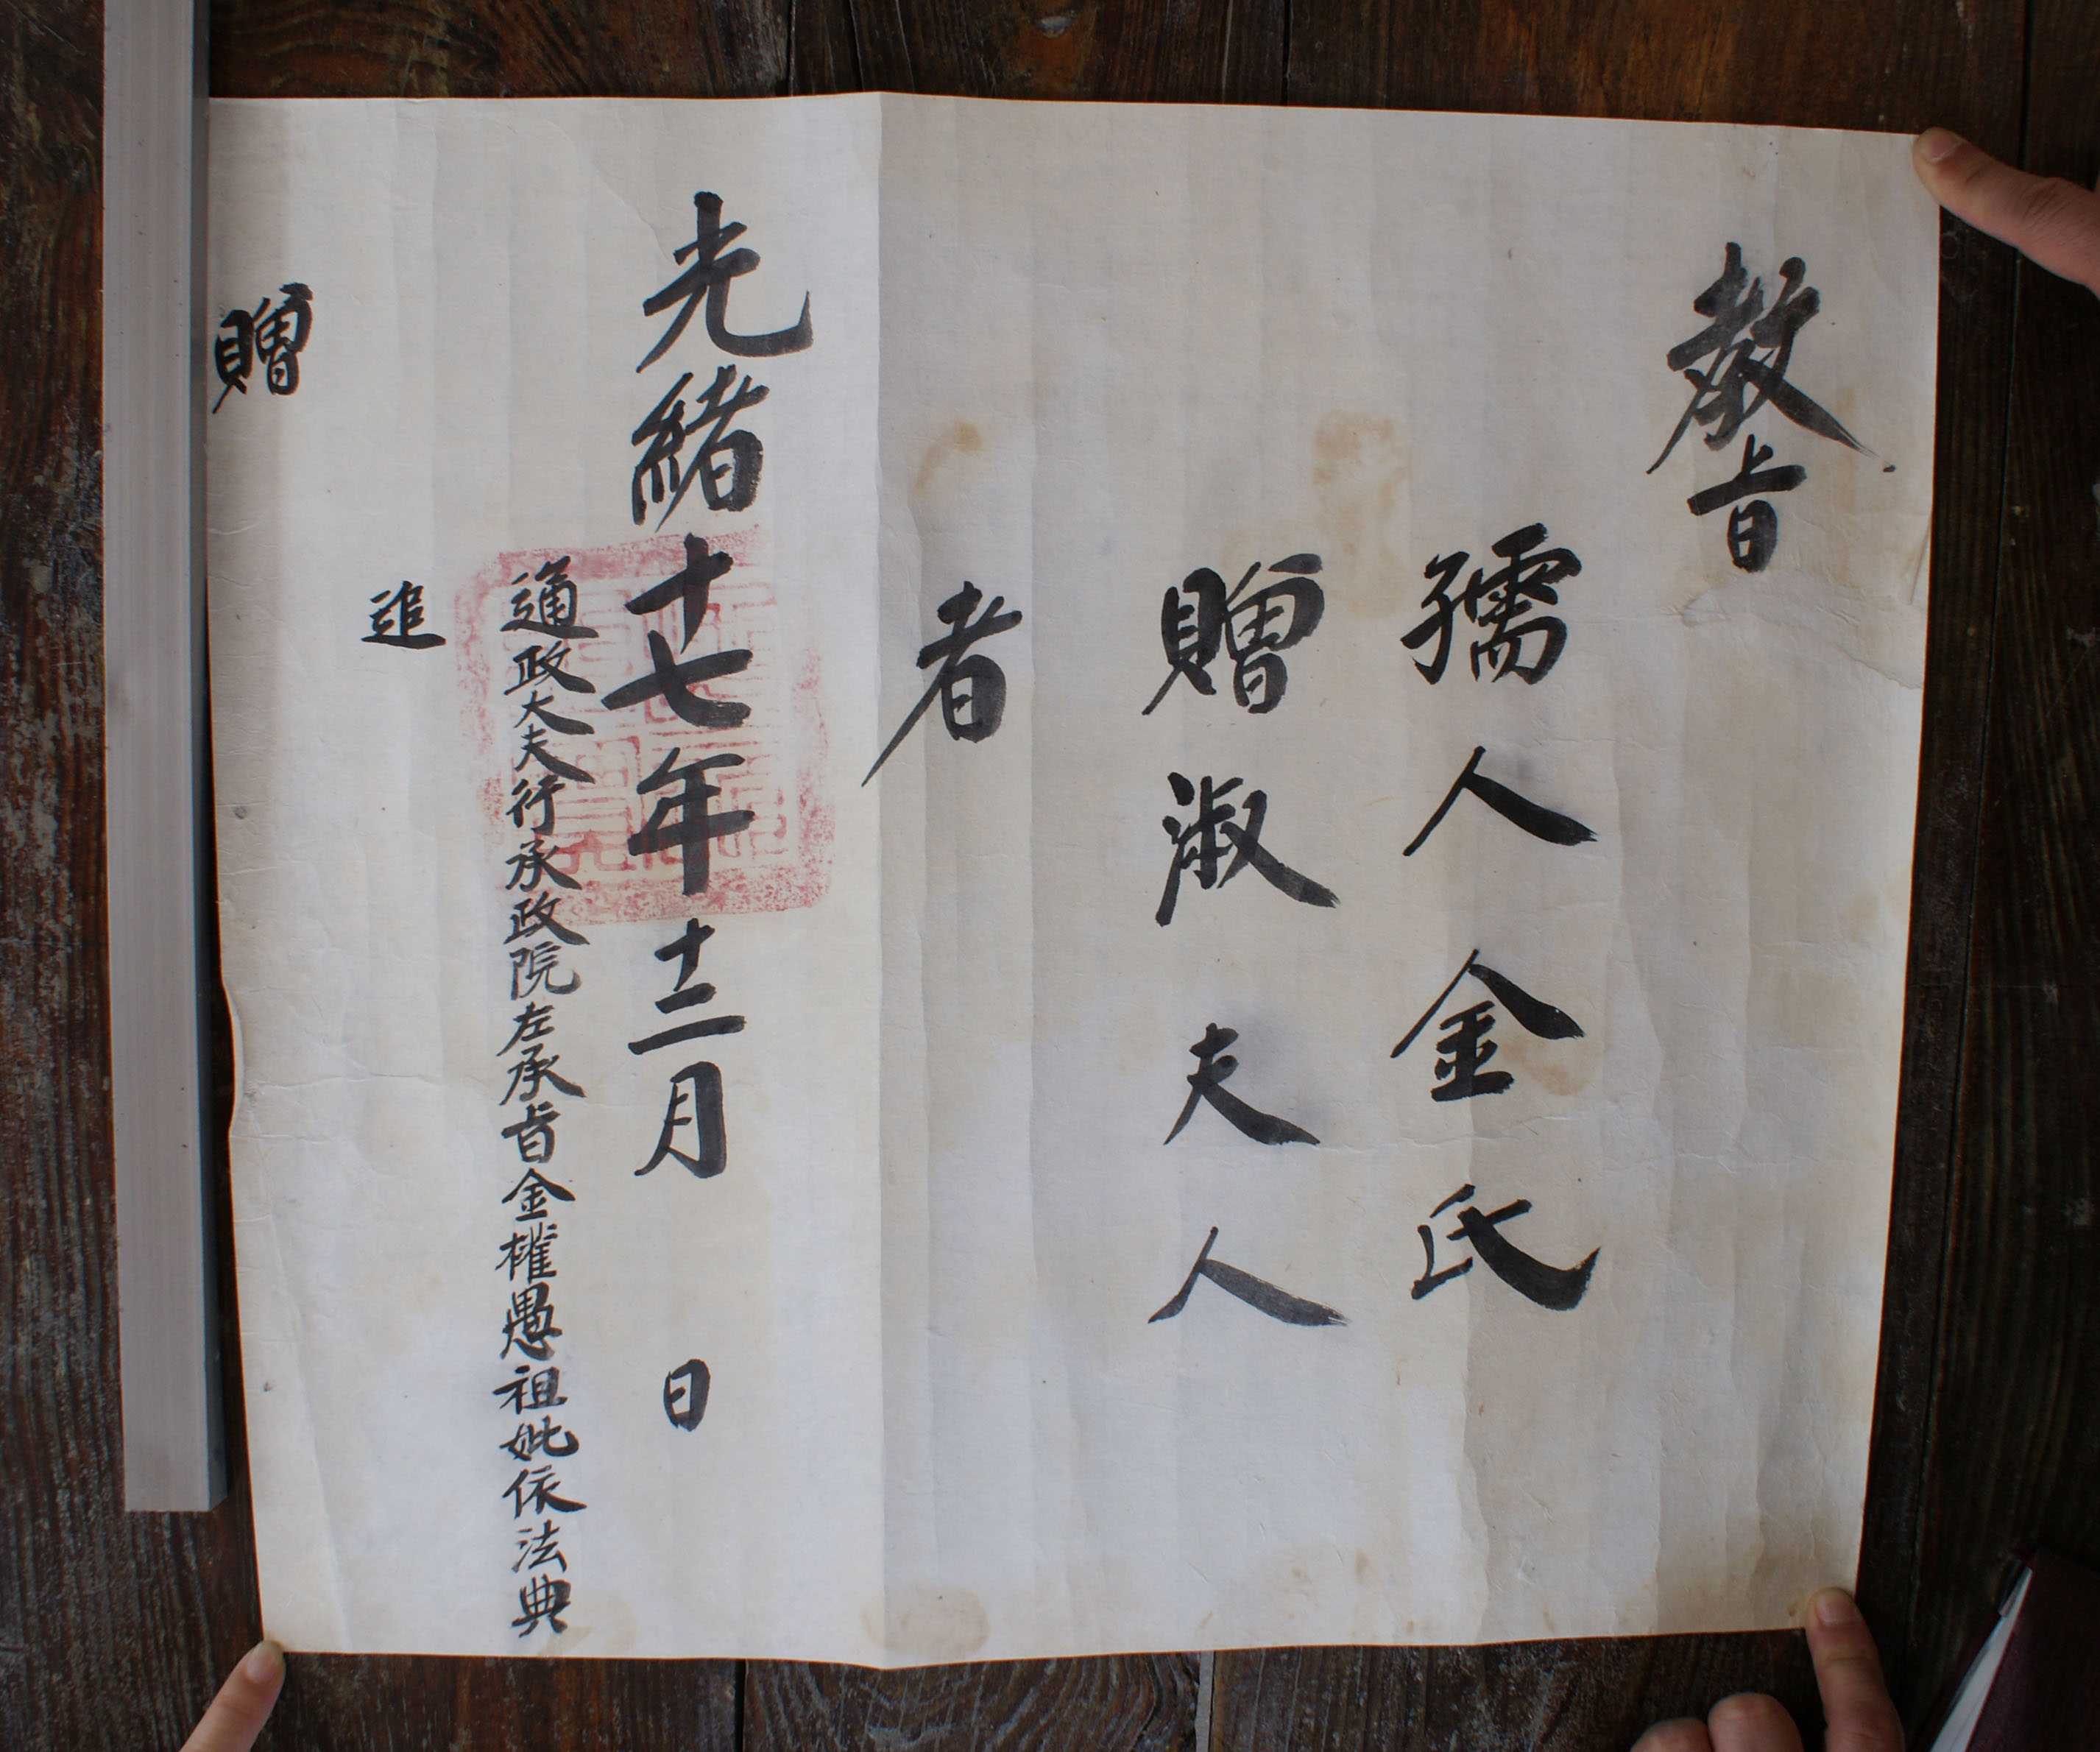 教旨
孺人金氏
贈淑夫人
者
光緒十七年十二月 日
通政大夫行承政院左承旨金權愚祖妣依法典
追
贈